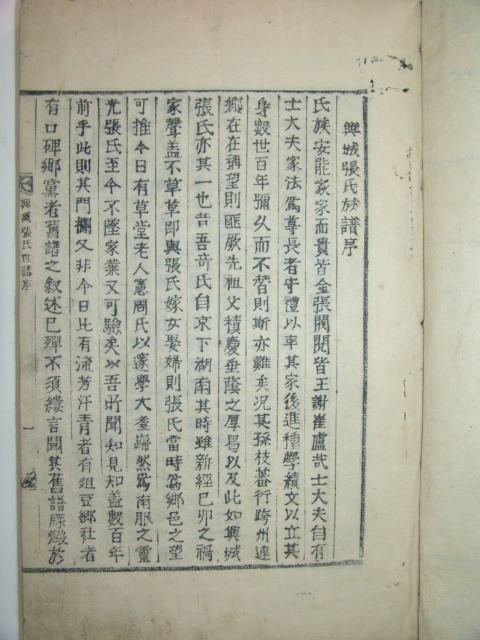 興城張氏族譜序
氏族安能家家而貴皆金張閥閱皆王謝崔盧哉士大夫自有
士大夫家法爲尊長者守禮以率其家後進種學績文以立其
身數世百年彌久而不替則斯亦難矣况其孫枝蕃衍跨州連
鄉在在稱望則匪厥先祖父積慶垂蔭之厚曷以及此如興城
張氏亦其一也昔吾奇氏自京下湖南其時雖新經己卯之禍
家聲盖不草草卽與張氏嫁女娶婦則張氏當時爲鄉邑之望
可推今日有草堂老人憲周氏以邃學大耋巋然爲南服之靈
光張氏至今不墜家業又可驗矣以吾所聞知見知盖數百年
前乎此則其門闌又非今日比有流芳汗青者有俎豆鄉社者
有口碑鄉黨者舊譜之叙述已殫不須縷言聞其舊譜燬於
興城張氏世譜序
一